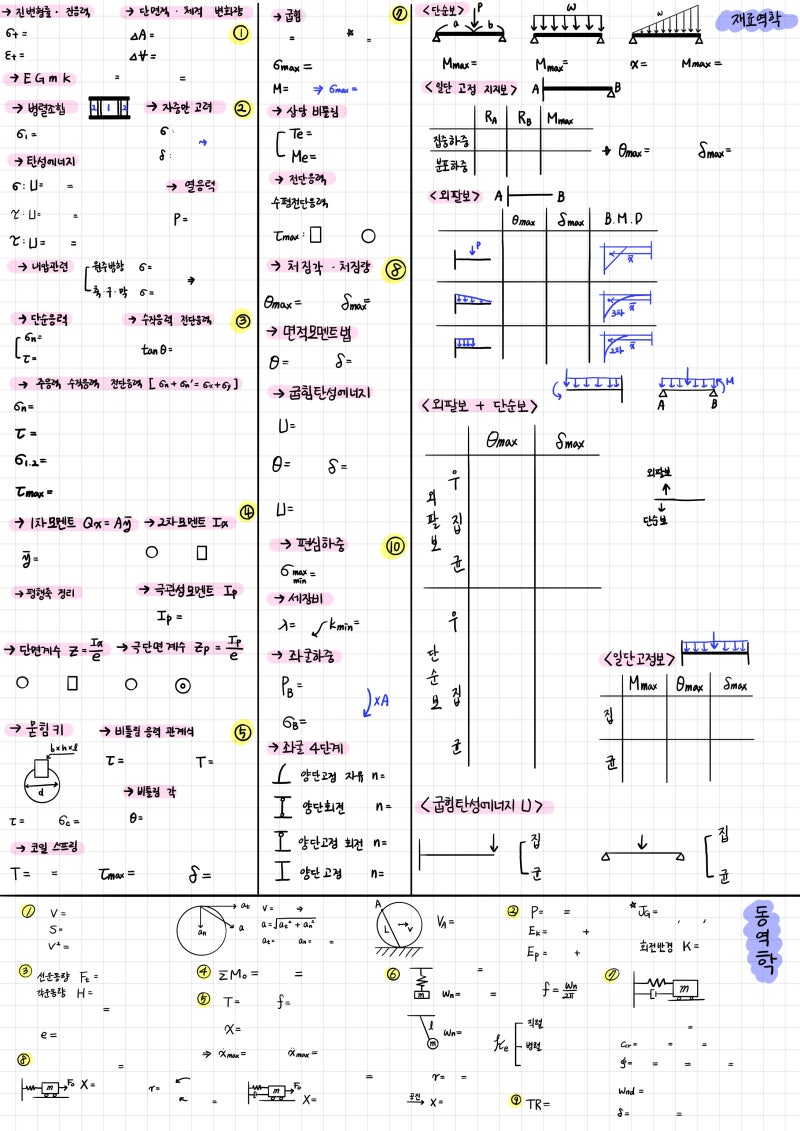 → 진변형률 · 진응력
→ 단면적 · 체적 변화량
①
σt =
ΔA =
εt =
ΔV =
→ E G m k = =
→ 병렬조합
2 1 2
→ 자중만 고려
②
σ₁ =
σ :
δ :
→ 탄성에너지
σ : U = =
→ 열응력
τ : U = =
P =
τ : U = =
→ 내압관련
원주방향 σ =
축 · 구 · 막 σ =
→ 단순응력
→ 수직응력 전단응력
③
σn =
τ =
tanθ =
→ 주응력 수직응력 전단응력 [ σn + σn' = σx + σy ]
σn =
τ =
σ1.2 =
τmax =
→ 1차모멘트 Qx = Aȳ
→ 2차모멘트 Ix
④
ȳ =
→ 평행축 정리
→ 극관성모멘트 Ip
Ip =
→ 단면계수 Z = Ix/e
→ 극단면계수 Zp = Ip/e
→ 묻힘키
→ 비틀림 응력 관계식
⑤
b×h×l
d
τ = T =
→ 비틀림 각
τ = σc =
θ =
→ 코일 스프링
T = =
τmax =
δ =
→ 굽힘
⑦
= * =
σmax =
M = ⇒ σmax =
→ 상당 비틀림
Te =
Me =
→ 전단응력
수평전단응력
τmax :
→ 처짐각 · 처짐량
⑧
θmax = δmax =
→ 면적모멘트법
θ = δ =
→ 굽힘탄성에너지
U =
θ = δ =
U =
→ 편심하중
⑩
σ max min =
→ 세장비
λ = kmin =
→ 좌굴하중
PB =
×A
σB =
→ 좌굴 4단계
양단고정 자유 n =
양단회전 n =
양단고정 회전 n =
양단고정 n =
재료역학
<단순보>
P
a b
ω
ω
Mmax = Mmax = x = Mmax =
<일단 고정 지지보> A B
RA RB Mmax
집중하중
분포하중
→ θmax = δmax =
<외팔보> A B
θmax δmax B.M.D
P
x̄
3차 x̄
2차 x̄
<외팔보 + 단순보>
M
A B
θmax δmax
외팔보
우
집
균
외팔보
단순보
단순보
우
집
균
<일단고정보>
Mmax θmax δmax
집
균
<굽힘탄성에너지 U>
집
균
집
균
동역학
①
V =
S =
V² =
at
an
a
V = →
a = √(at² + an²)
at = an = =
A
L
v
VA =
②
P = =
Ek = +
Ep = +
* JG = , ,
회전반경 K =
③
선운동량 Ft =
각운동량 H =
=
e =
④ ΣMo = =
⑤ T = f =
X =
⇒ ẋmax = ẍmax =
⑥
m
=
ωn =
f = ωn/2π
l
m
ωn =
ke
직렬
병렬
⑦
m
=
Ccr = = =
φ = = = =
ωnd =
δ = =
⑧
=
m
F₀
X =
r =
=
m
F₀
X =
=
r = =
공진 → X =
⑨ TR =